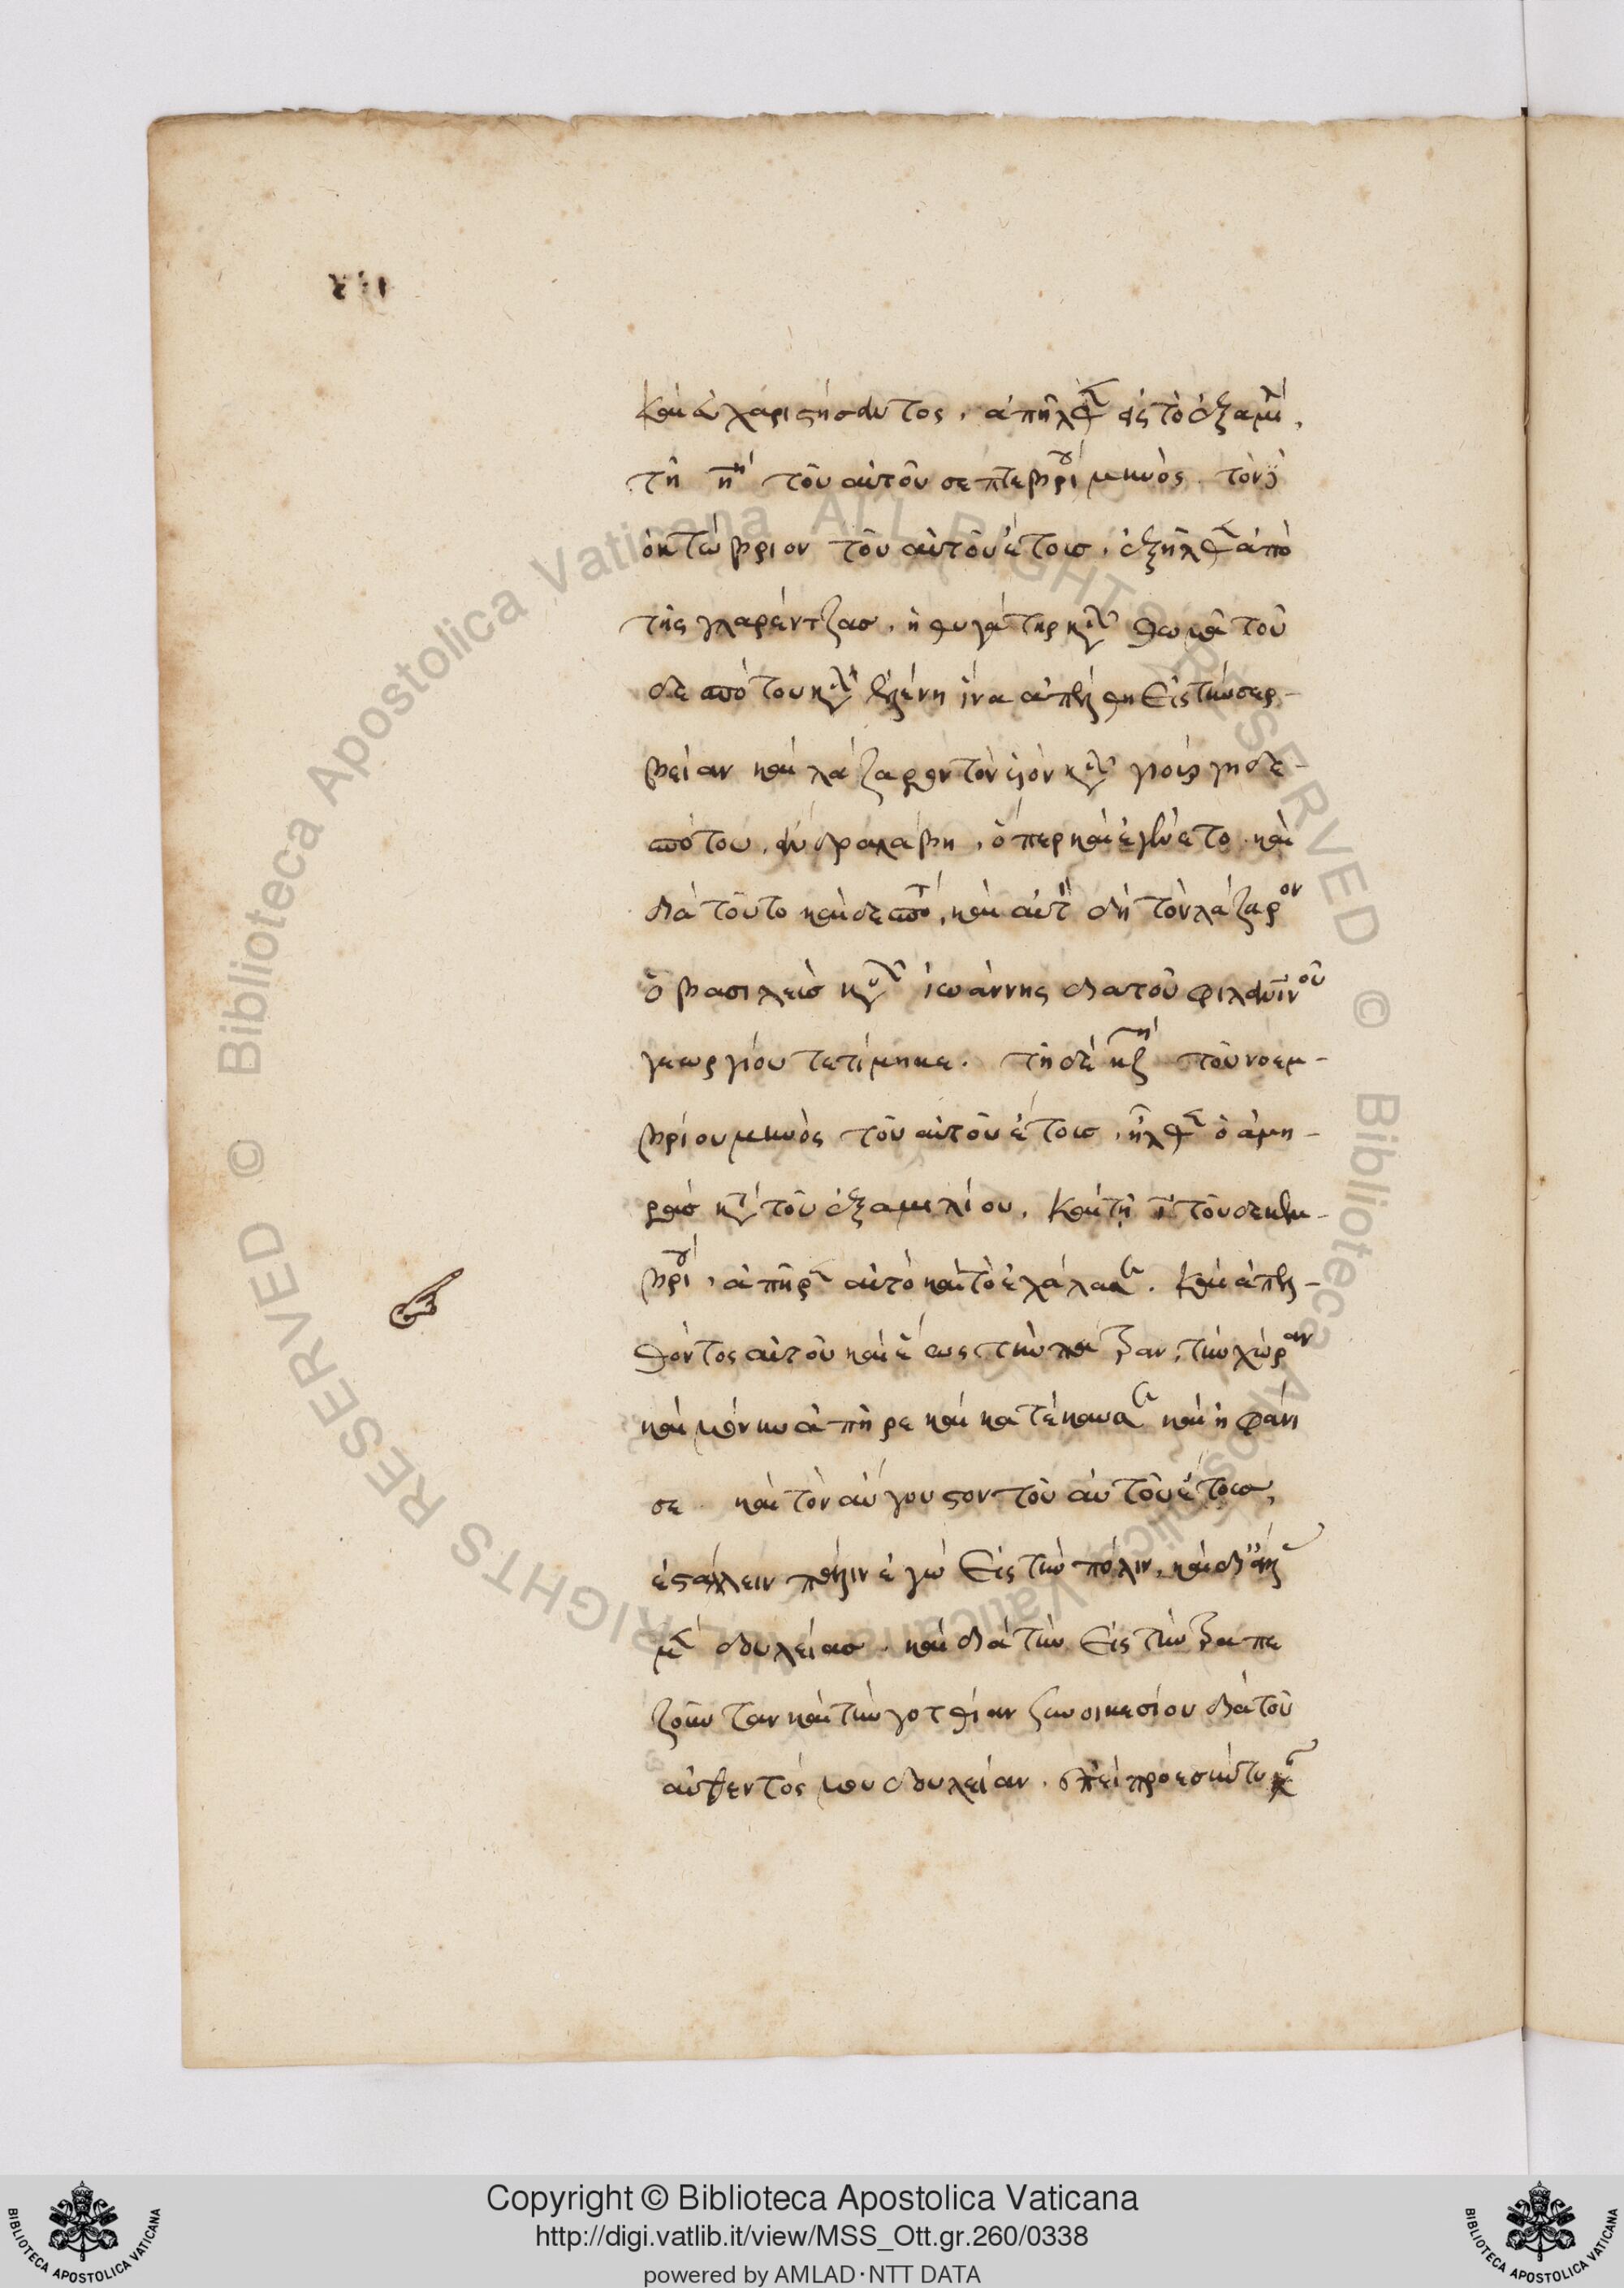 καὶ εὐχαριστήσαντος, ἀπῆλθεν εἰς τὸ ἑξαμίλι,
τῇ η τοῦ αὐτοῦ σεπτεβρίου μηνός. τὸν
ὀκτώβριον τοῦ αὐτοῦ ἔτους, ἐξῆλθεν ἀπὸ
τῆς γλαρέντζας, ἡ θυγάτηρ κυροῦ θωμᾶ τοῦ
δεσπότου κυρὰ ἑλένη ἵνα ἀπέλθη εἰς τὴν σερ-
βείαν καὶ λάζαρον τὸν υἱὸν κυροῦ γιούργη δε-
σπότου, εἰς ἄνδρα λάβη, ὅπερ καὶ ἐγένετο. καὶ
διὰ τοῦτο καὶ δεσπότην, καὶ αὐτὸν δὴ τὸν λάζαρον
ὁ βασιλεὺς κυρὸς ἰωάννης διὰ τοῦ φιλανθρωπινοῦ
γεωργίου τετίμηκε. τῇ δὲ κζη τοῦ νοεμ-
βρίου μηνὸς τοῦ αὐτοῦ ἔτους, ἦλθεν ὁ ἀμη-
ρᾶς κατὰ τοῦ ἑξαμιλίου. καὶ τῇ ι τοῦ δεκεμ-
βρίου, ἀπῆρεν αὐτὸ καὶ τὸ ἐχάλασεν. καὶ ἀπελ-
θόντος αὐτοῦ καὶ ἕως τὴν πάτραν, τὴν χώραν
καὶ μόνην ἀπῆρε καὶ κατέκαυσεν καὶ ἠφάνι
σε. καὶ τὸν αὔγουστον τοῦ αὐτοῦ ἔτους,
ἐστάλλειν πάλιν ἐγὼ εἰς τὴν πόλιν, καὶ δι' ἄλλας
μὲν δουλείας. καὶ διὰ τὴν εἰς τὴν τραπε
ζοῦνταν καὶ τὴν γοτθίαν συνοικεσίου διὰ τοῦ
αὐθεντός μου δουλείαν. ἐπεὶ προεσκέπτετο